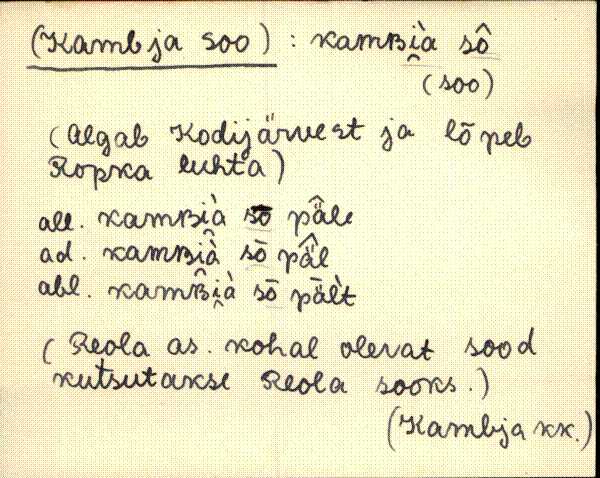 (Kambja soo) : kamʙi̭à sô
(soo)
(Algab Kodijärvest ja lõpeb
Ropka luhta)
all. kamʙi̭à sō pä̂le
ad. kamʙi̭à sō pä̂l
abl. kamʙi̭à sō pǟl̀t
(Reola as. kohal olevat sood
kutsutakse Reola sooks.)
(Kambja kk.)